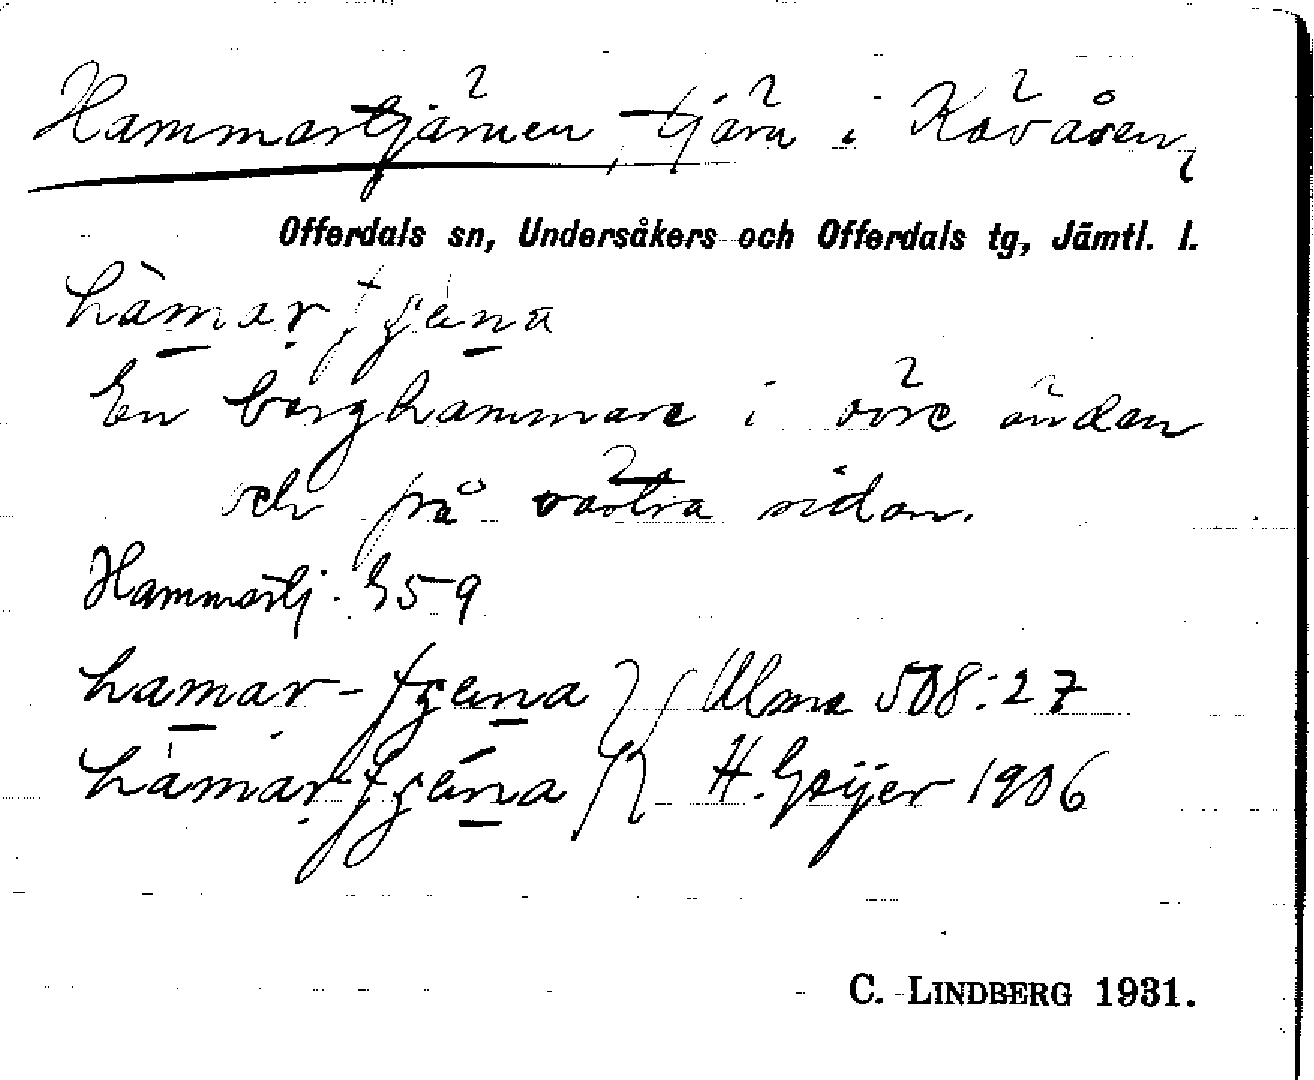 Hammartjärnen, tjärn i Kövåsen,
Offerdals sn, Undersåkers och Offerdals tg, Jämtl. l.
hàmar,
En berghammare i övre änden
och på västra sidan.
Hammartj. E59
hamar-    Ulma 508:27
hàmar-    H. Geijer 1906
C. LINDBERG 1931.